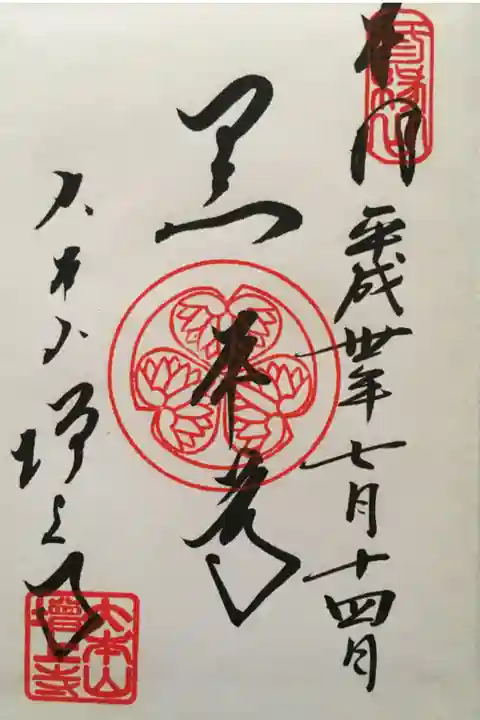 奉拝
平成卅年七月十四日
黒本尊
大本山増上寺
大本山増上寺